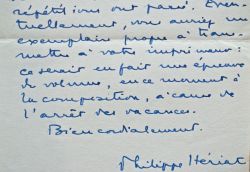 répétitions ont passé. Éven-
tuellement, vous auriez un
exemplaire propre à trans-
mettre à votre imprimeur :
ce serait en fait une épreuve
de volume, en ce moment à
la composition, à cause de
l'arrêt des vacances.
Bien cordialement.
Philippe Hériat